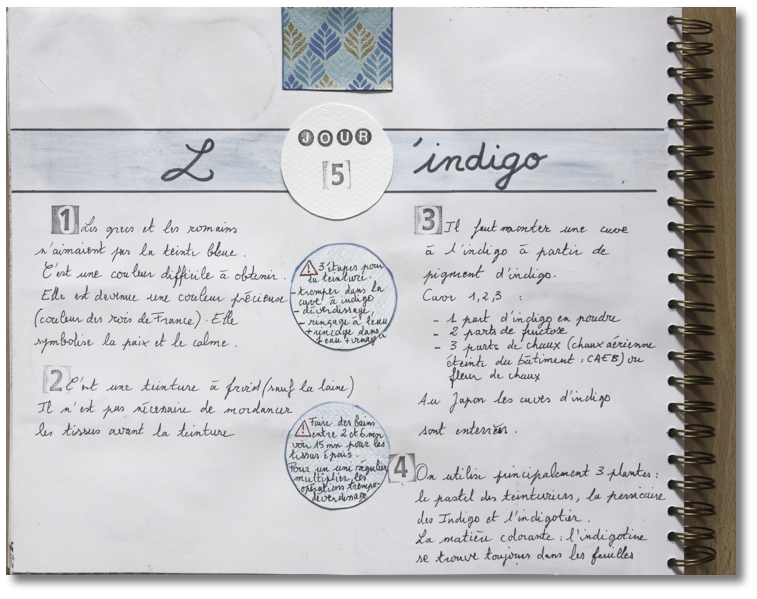 JOUR
[5]
L'indigo
1 Les grecs et les romains
n'aimaient pas la teinte bleue.
C'est une couleur difficile à obtenir.
Elle est devenue une couleur précieuse
(couleur des rois de France). Elle
symbolise la paix et le calme.
2 C'est une teinture à froid (sauf la laine)
Il n'est pas nécessaire de mordancer
les tissus avant la teinture
⚠ 3 étapes pour
la teinture.
- tremper dans la
cuve à indigo
- déverdissage
- rinçage à l'eau
+ rinçage dans
1 eau + vinaigre
⚠ Faire des bains
entre 2 et 6 mn
voir 15 mn pour les
tissus épais.
Pour un uni régulier
multiplier les
opérations trempe-
déverdissage
3 Il faut monter une cuve
à l'indigo à partir de
pigment d'indigo.
Cuve 1,2,3 :
- 1 part d'indigo en poudre
- 2 parts de fructose
- 3 parts de chaux (chaux aérienne
éteinte du bâtiment : CAEB) ou
fleur de chaux
Au Japon les cuves d'indigo
sont enterrées.
4 On utilise principalement 3 plantes :
le pastel des teinturiers, la persicaire
des Indigo et l'indigotier.
La matière colorante : l'indigotine
se trouve toujours dans les feuilles